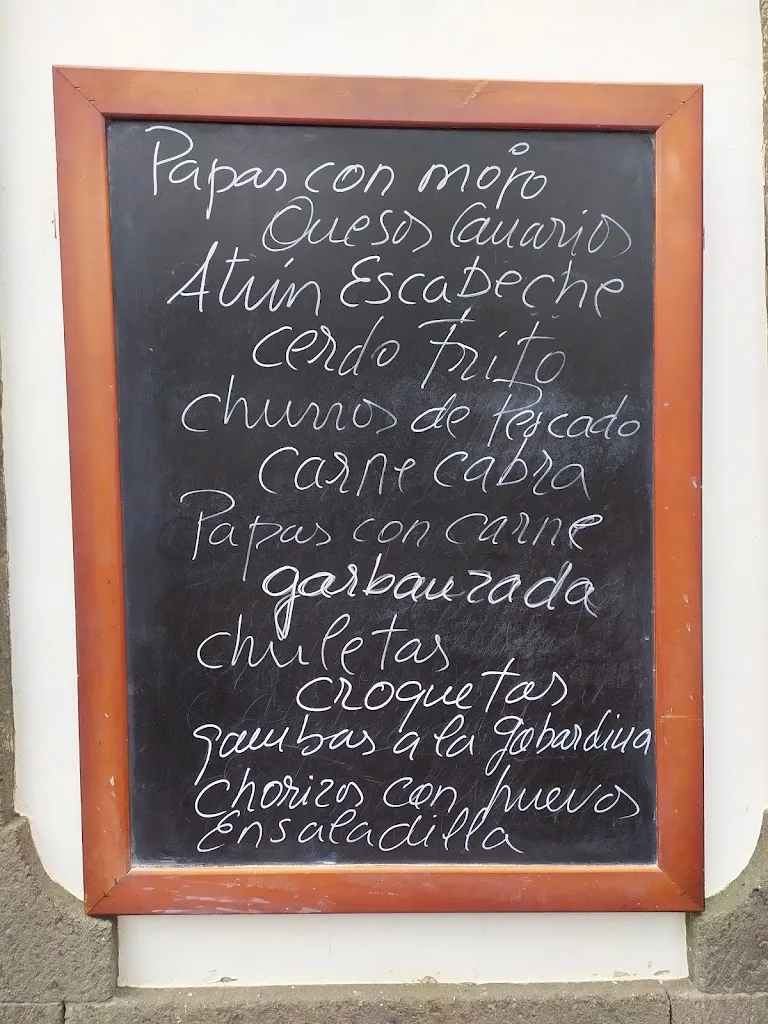 Papas con mojo
Quesos Canarios
Atún Escabeche
Cerdo Frito
churros de Pescado
Carne cabra
Papas con carne
garbanzada
chuletas
croquetas
gambas a la gabardina
Chorizos con huevos
Ensaladilla